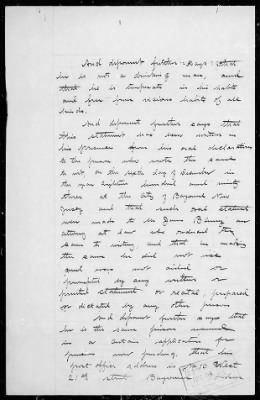 And deponent further says that
he is not a drinking man, and
that he is temperate in his habits
and free from vicious habits of all
kinds.
And deponent further says that
this statement was here written in
his presence from his oral declarations
to the person who wrote the same
to wit, on the sixth day of December in
the year eighteen hundred and ninety
three at the City of Bayonne New
Jersey and that such oral statement
was made to Mr
attorney at law who reduced the
same to writing and that in making
the same he did not use
and was not aided or
prompted by any written or
printed statement or recital prepared
or dictated by any other person
And deponent further says that
he is the same person named
in a certain application for
pension now pending, that his
post office address is No 10 West
21st street Bayonne